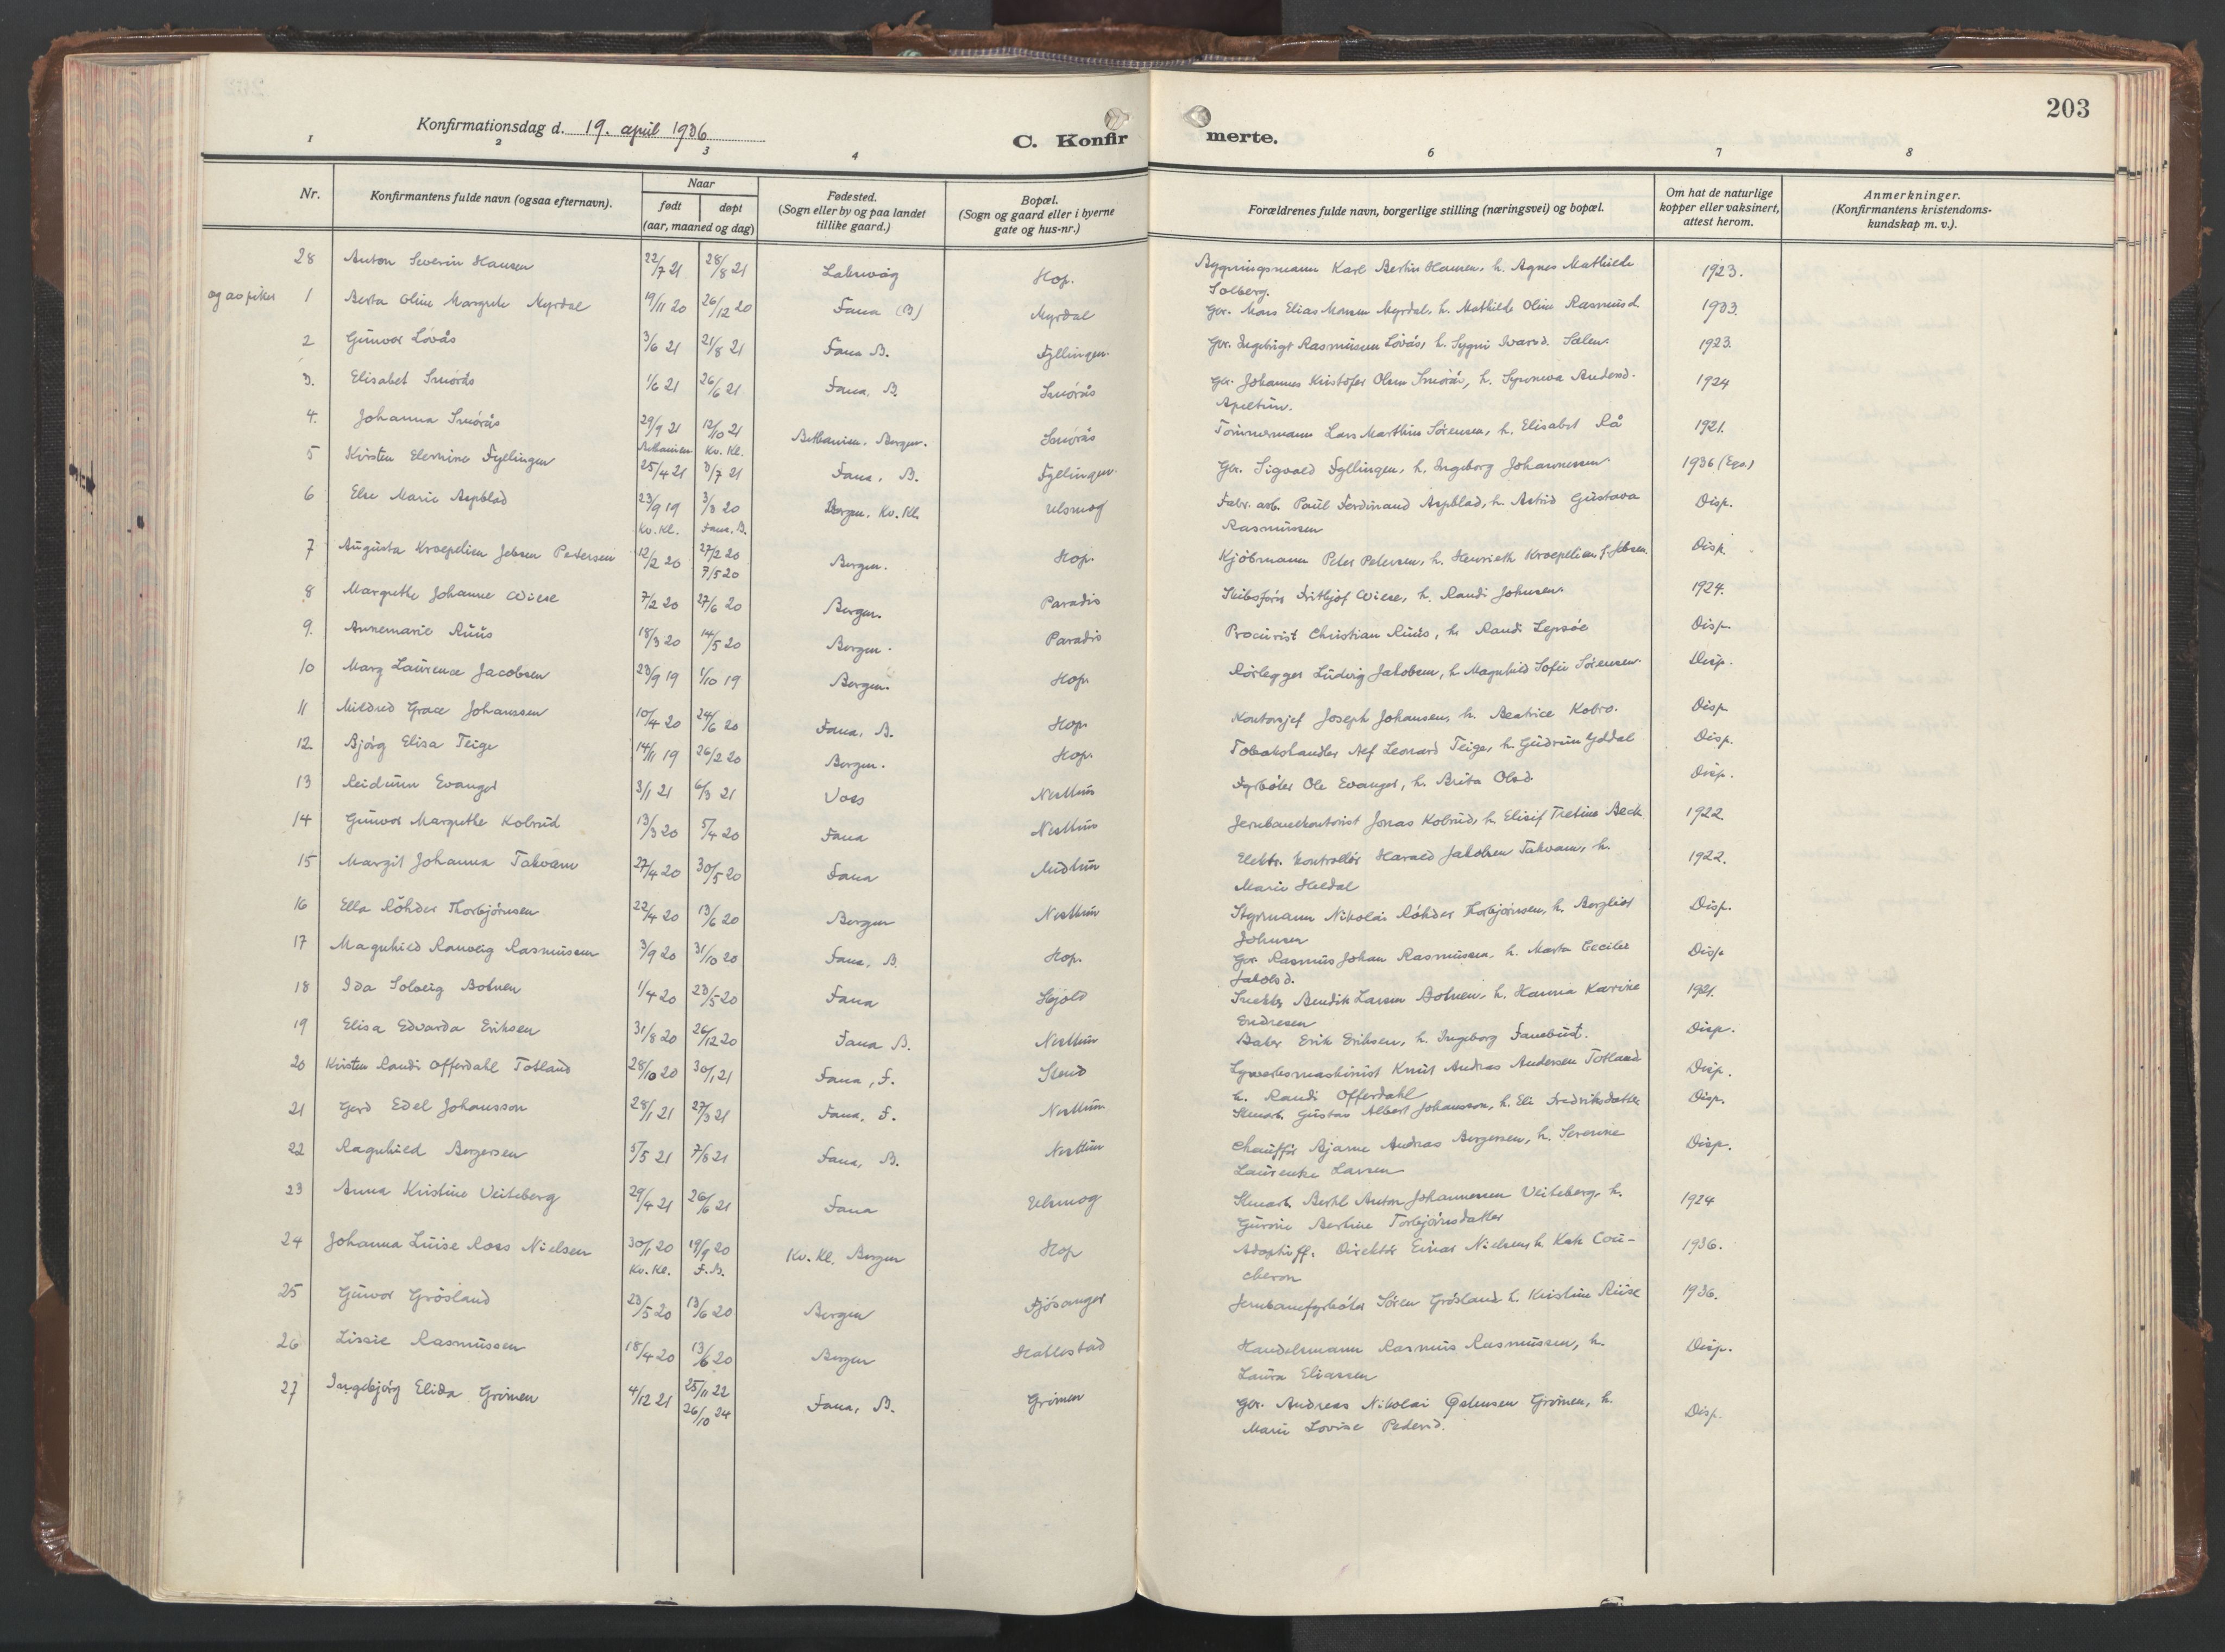 203
Konfirmationsdag d. 19. april 1936
C. Konfirmerte.
1 2 3 4 6 7 8
Nr. Konfirmantens fulde navn (ogsaa efternavn). Naar født døpt (aar, maaned og dag) Fødested. (Sogn eller by og paa landet tillike gaard.) Bopæl. (Sogn og gaard eller i byerne gate og hus-nr.) Forældrenes fulde navn, borgerlige stilling (næringsvei) og bopæl. Om hat de naturlige kopper eller vaksinert, attest herom. Anmerkninger. (Konfirmantens kristendoms-kundskap m. v.).
28 Anton Severin Hansen 22/7 21 28/8 21 Laksevåg Hop. Bygningsmann Karl Bertin Hansen, h. Agnes Mathilde 1923.
Solberg.
og av piker 1 Berta Oline Margrete Myrdal 19/11 20 26/12 20 Fana (B) Myrdal Gbr. Mons Elias Monsen Myrdal, h. Mathilde Oline Rasmusd. 1933.
2 Gunvor Løvås 3/6 21 21/8 21 Fana B. Fyllingen. Gbr. Ingebrigt Rasmussen Løvås, h. Sygni Ivarsd. Sælen. 1923.
3. Elisabet Smørås 1/6 21 26/6 21 Fana, B. Smørås Gbr. Johannes Kristofer Olsen Smørås, h. Synneva Andersd. 1924
Apeltun.
4. Johanna Smørås 29/9 21 12/10 21 Bethanien. Bergen. Smørås Tømmermann Lars Marthin Sørensen, h. Elisabet Rå 1921.
Bethanien Kv. Kl.
5 Kirsten Elernine Fyllingen 25/4 21 3/7 21 Fana, B. Fyllingen. Gbr. Sigvald Fyllingen, h. Ingeborg Johannessen. 1936
6 Else Marie Aspblad 23/9 19 3/3 20 Bergen. Kv. Kl. Ulsmog Fabr. arb. Paul Ferdinand Aspblad, h. Astrid Gustava Disp.
Kv. Kl. Fana. B. Rasmussen
7 Augusta Kroepelien Jebsen Petersen 12/2 20 27/2 20 Bergen. Hop. Kjøbmann Peter Petersen, h. Henrieth Kroepelien f. Jebsen. Disp.
7/5 20
8 Margrethe Johanne Wiese 7/2 20 27/6 20 Bergen. Paradis Skibsfører Frithjof Wiese, h. Randi Johnsen. 1924.
9. Annemarie Ruus 18/3 20 14/5 20 Bergen. Paradis Procurist Christian Ruus, h. Randi Lepsøe Disp.
10 Mary Laurence Jacobsen 23/9 19 1/10 19 Bergen. Hop. Rørlegger Ludvig Jakobsen, h. Magnhild Sofie Sørensen. Disp.
11 Mildred Grace Johanssen 10/4 20 24/6 20 Fana, B. Hop. Kontorsjef Joseph Johansen, h. Beatrice Kobro. Disp.
12. Bjørg Elisa Teige 14/11 19 26/2 20 Bergen. Hop. Tobakshandler Alf Leonard Teige, h. Gudrun Yddal Disp.
13 Reidunn Evanger 3/1 21 6/3 21 Voss Nesttun Fyrbøter Ole Evanger, h. Brita Olsd. Disp.
14 Gunvor Margrethe Kolrud 13/3 20 5/4 20 Fana Nesttun Jernbanekontorist Jonas Kolrud, h. Elisif Tretine Beck 1922
15 Margit Johanna Takvam 27/4 20 30/5 20 Fana Midtun Elektr. kontrollør Harald Jakobsen Takvam, h. 1922.
Marie Heldal
16 Ella Røhder Thorbjørnsen 22/4 20 13/6 20 Bergen Nesttun Styrmann Nikolai Røhder Thorbjørnsen, h. Bergliot Disp.
Johnsen
17 Magnhild Ranveig Rasmussen 3/9 20 31/10 20 Fana, B. Hop. Gbr. Rasmus Johan Rasmussen, h. Marta Cecilie Disp.
Jakobsd.
18 Ida Solveig Botnen 1/4 20 23/5 20 Fana Hjold Snekker Bendik Larsen Botnen, h. Hanna Karine 1921.
Endresen
19 Elisa Edvarda Eriksen 31/8 20 26/12 20 Fana B. Nesttun Baker Erik Eriksen, h. Ingeborg Fanebust. Disp.
20 Kirsten Randi Offerdahl Totland 28/10 20 30/1 21 Fana, F. Stend Lysverksmaskinist Knut Andreas Andersen Totland Disp.
h. Randi Offerdahl
21 Gerd Edel Johansson 28/1 21 27/3 21 Fana, F. Nesttun Skmark. Gustav Albert Johansson, h. Eli Fredriksdatter Disp.
22 Ragnhild Bergersen 3/5 21 7/8 21 Fana, B. Nesttun Chauffør Bjarne Andreas Bergersen, h. Severine Disp.
Laurentse Larsen
23 Anna Kristine Veiteberg 29/4 21 26/6 21 Fana Ulsmog Skmark. Bertil Anton Johannessen Veiteberg, h. 1924
Gurine Bertine Torbjørnsdatter
24 Johanna Luise Ross Nielsen 30/1 20 19/9 20 Kv. Kl. Bergen Hop Adoptivff. Direktør Einar Nielsen h. Kate Cou- 1936.
Kv. Kl. F. B. cheron
25 Gunvor Grösland 23/5 20 13/6 20 Bergen Fjøsanger Jernbanefyrbøter Sören Grösland h. Kristine Riise 1936.
26 Lissie Rasmussen 18/4 20 13/6 20 Bergen Hatlestad Handelsmann Rasmus Rasmussen, h. Disp.
Laura Eliassen
27 Ingebjørg Elida Grimen 4/12 21 25/11 22 Fana, B. Grimen Gbr. Andreas Nikolai Østensen Grimen, h. Disp.
26/10 24 Marie Lovise Pedersd.